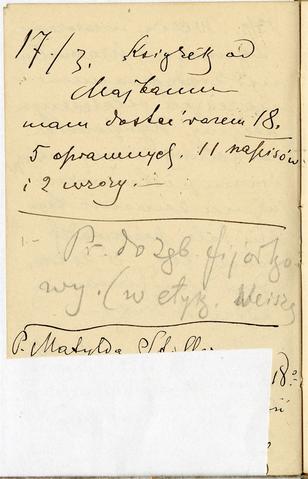 17/3. Książek od
Majbaum
mam dostać razem 18.
5 oprawnych. 11 napisów
i 2 wzory. —
P. do zgb. fijołko-
wy. (w etyk. Weisz
P. Matylda
18